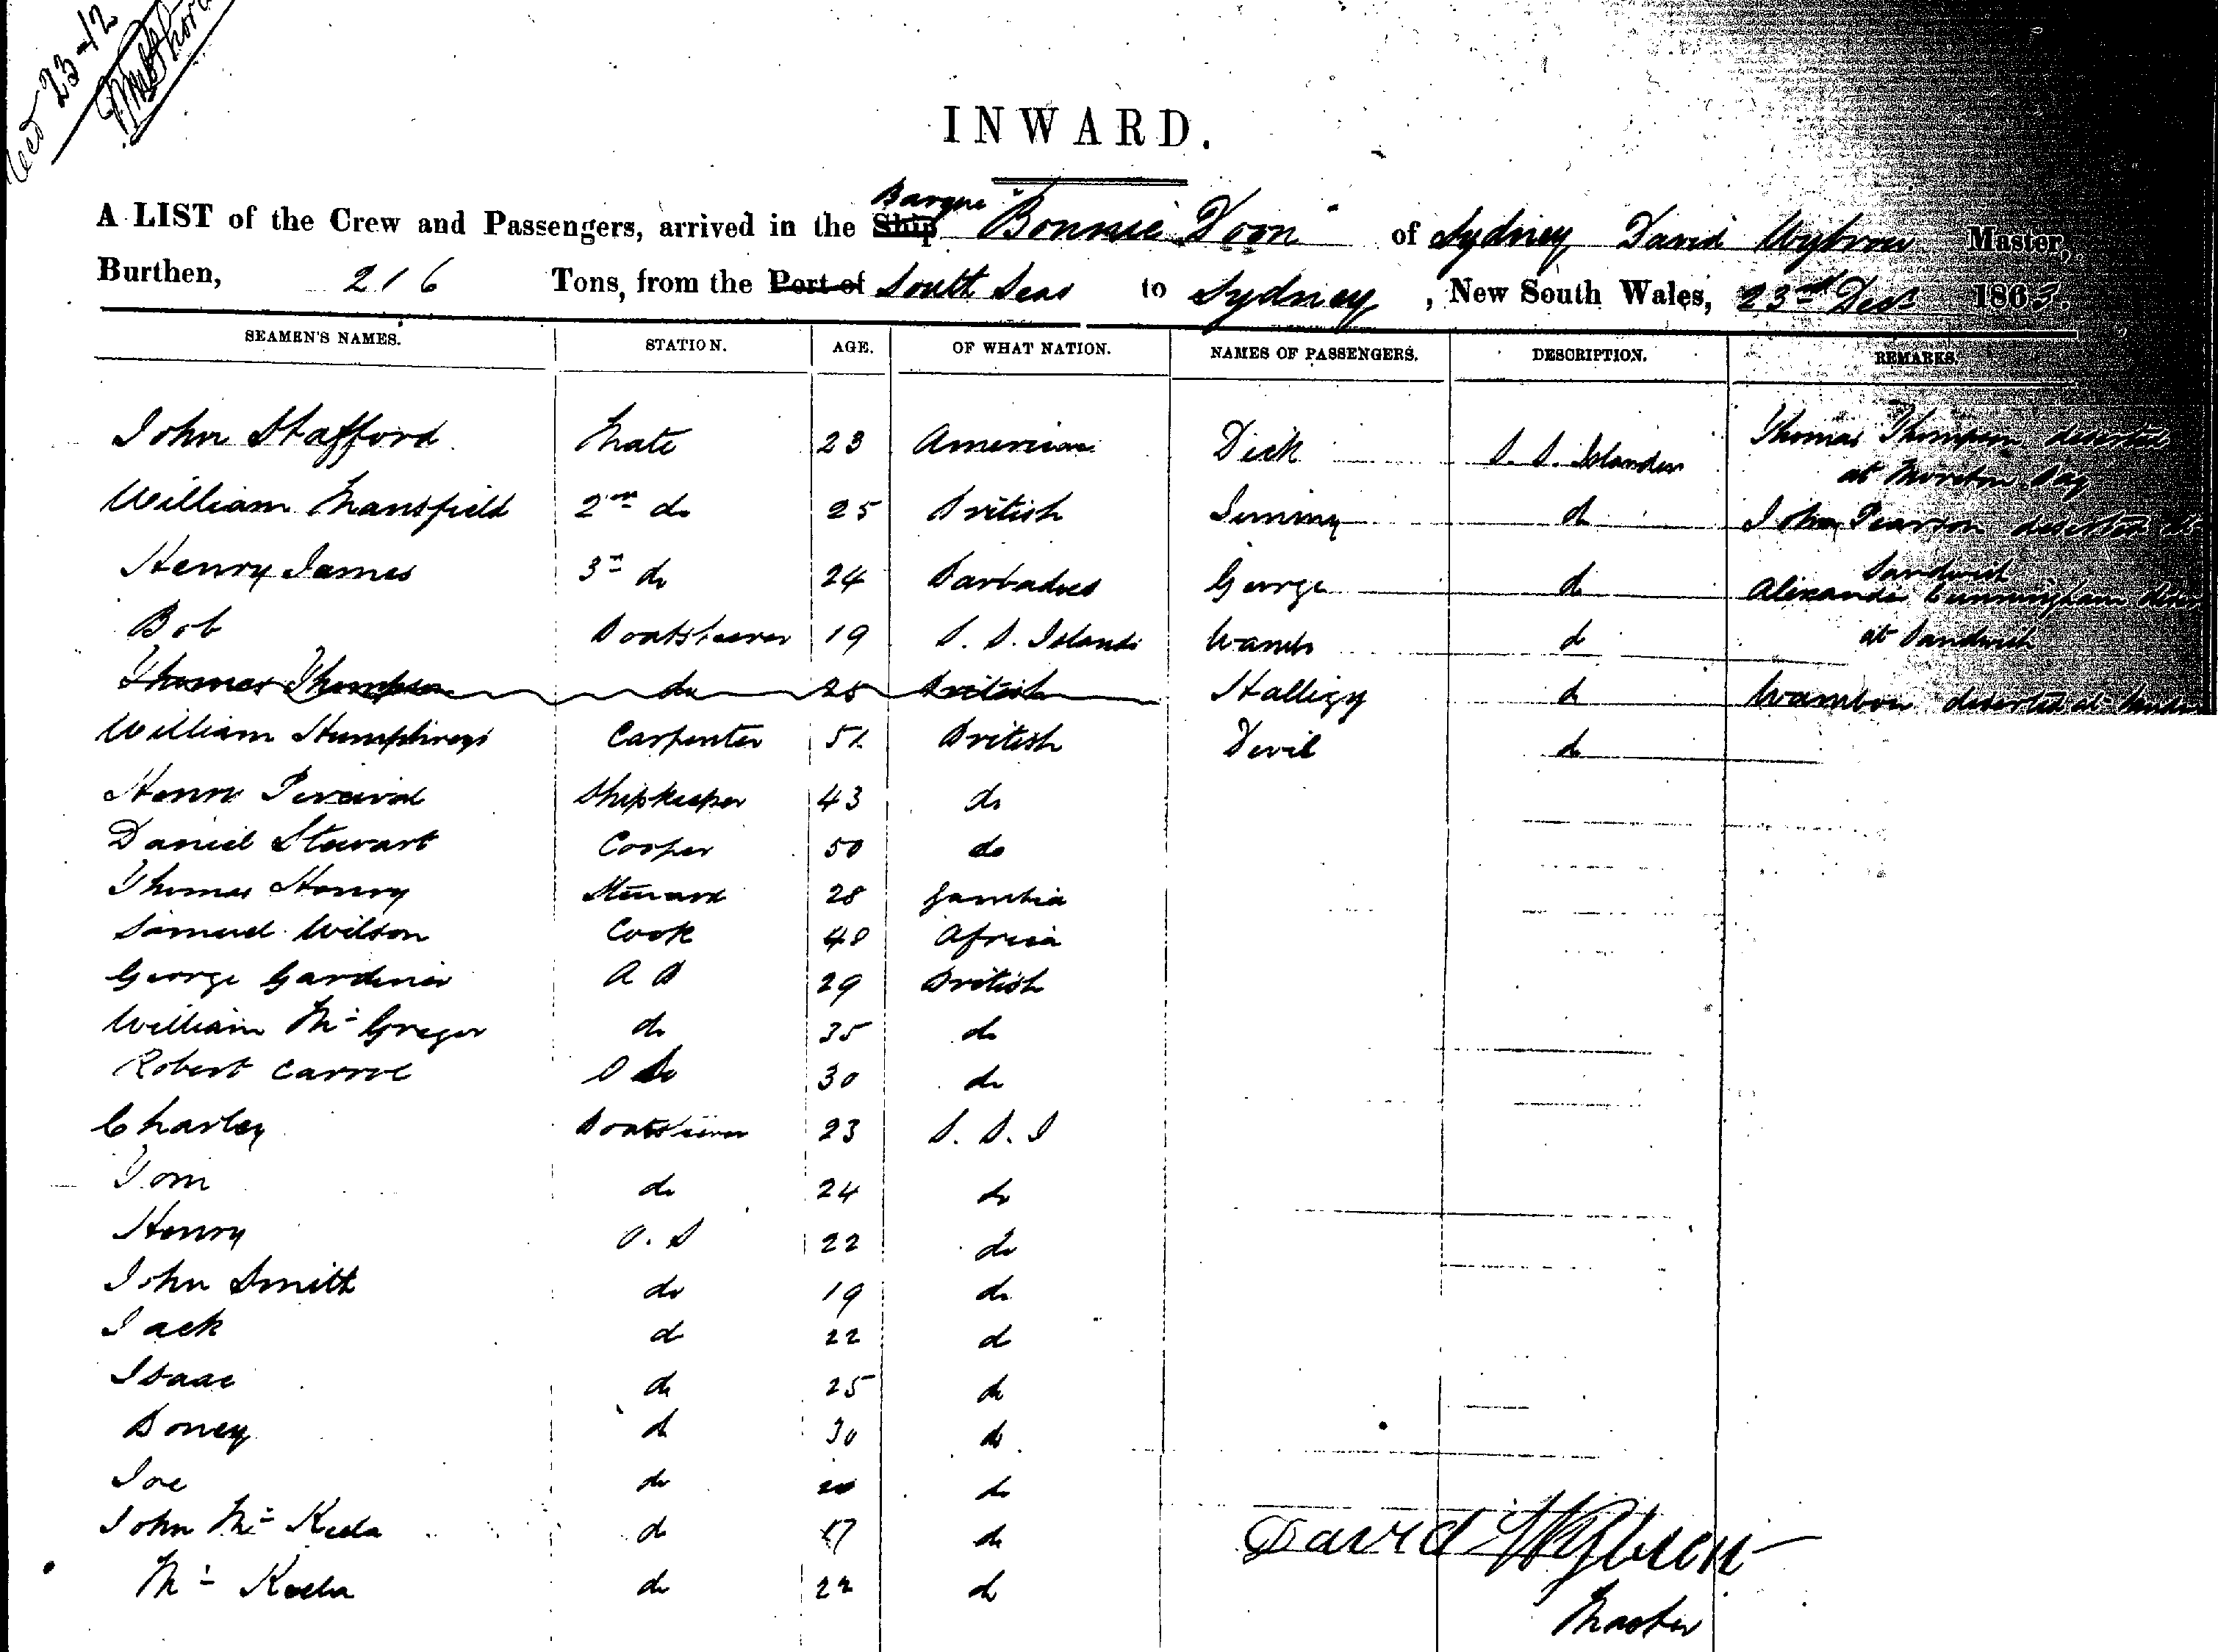 23-12
INWARD.
Barque
A LIST of the Crew and Passengers, arrived in the Ship "Bonnie Doon" of Sydney David Wybrow Master,
Burthen, 216 Tons, from the Port of South Seas to Sydney, New South Wales, 23rd Decr 1863.
SEAMEN'S NAMES. STATION. AGE. OF WHAT NATION. NAMES OF PASSENGERS. DESCRIPTION. REMARKS.
John Stafford Mate 23 American Dick S. S. Islander Thomas Thompson deserted
at Moreton Bay
William Mansfield 2nd do 25 British Jimmy do John Pearson deserted at
Sandwich
Henry James 3rd do 24 Barbadoes George do Alexander Cunningham
at Sandwich
Bob Boatsteerer 19 S. S. Islands Wamb do
Thomas Thompson do 25 British Stalligy do Wambow deserted at
William Humphreys Carpenter 51 British Devil do
Henry Percival Shipkeeper 43 do
Daniel Stewart Cooper 50 do
Thomas Henry Steward 28 Gambia
Samuel Wilson Cook 48 Africa
George Gardiner A B 29 British
William Mc Gregor do 35 do
Robert Carrol O S 30 do
Charley Boatsteerer 23 S. S. I
Tom do 24 do
Henry O. S 22 do
John Smith do 19 do
Jack do 22 do
Isaac do 25 do
Boney do 30 do
Joe do 20 do
John Mc Keela do 17 do
Mc Keela do 22 do
David Wybrow
Master